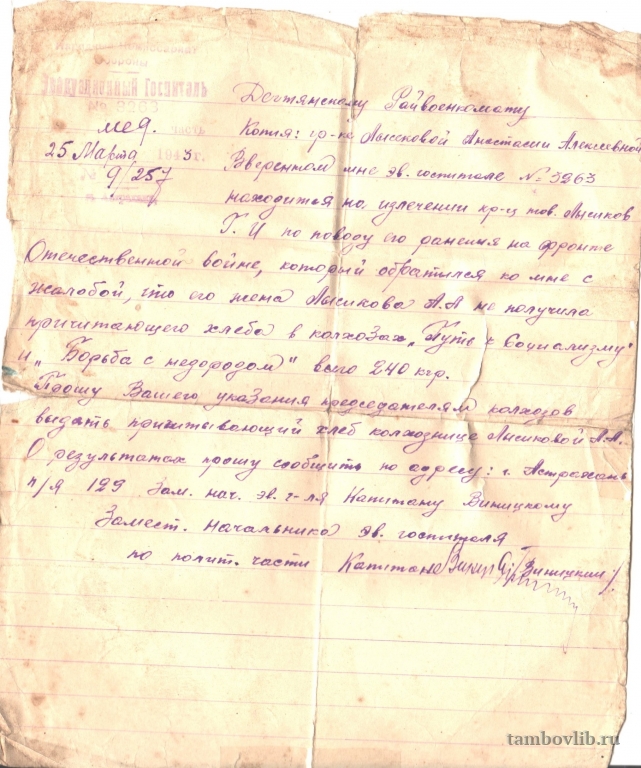 Народный Комиссариат
Обороны
Эвакуационный Госпиталь
№ 3263
мед. часть
25 Марта 1943 г.
№ 9/257
Дегтянскому Райвоенкомату
Копия: гр-ке Лысковой Анастасии Алексеевной
Вверенном мне эв. госпитале № 3263
находится на излечении кр-ц тов. Лысиков
Г. И по поводу его ранения на фронте
Отечественной войне, который обратился ко мне с
жалобой, что его жена Лысикова А.А не получила
причитающего хлеба в колхозах „Путь к Социализму"
и „Борьба с недородом" всего 240 кгр.
Прошу Вашего указания председателям колхозов
выдать причитывающий хлеб колхознице Лысиковой А.А.
О результатах прошу сообщить по адресу: г. Астрахань
п/я 129 Зам. нач. эв. г-ля Капитану Виницкому
Замест. Начальника эв. госпиталя
по полит. части Капитан /Виницкий/
tambovlib.ru